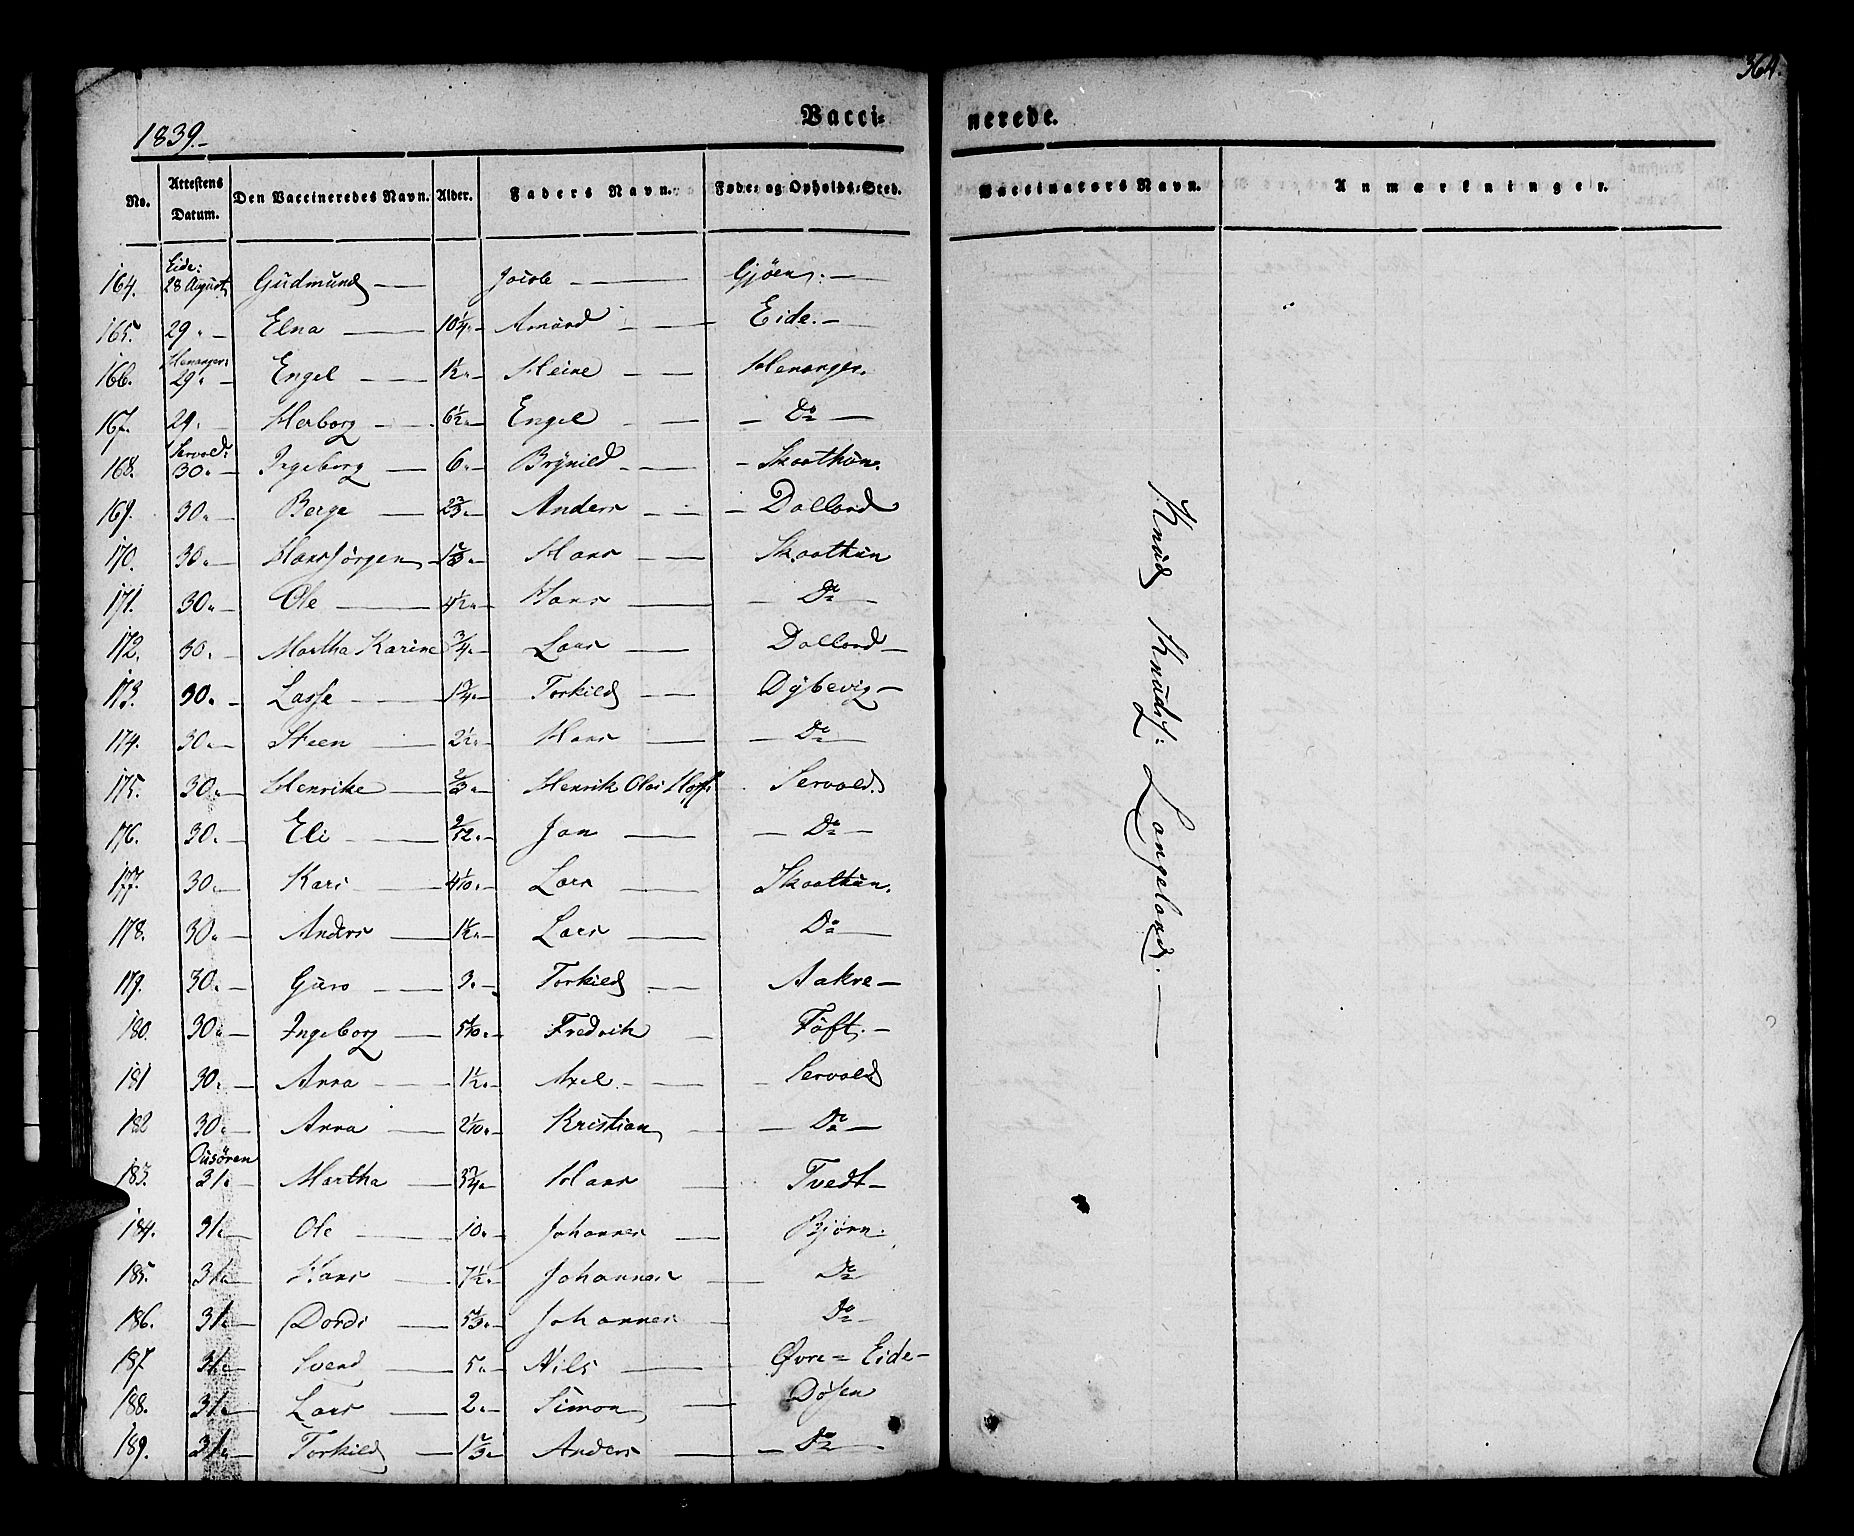 364.
1839.-
Vacci- nerede.
No. Attestens Datum. Den Vaccineredes Navn. Alder. Faders Navn. Føde- og Opholds-Sted. Vaccinators Navn. Anmærkninger.
Eide:
164. 28 August Gudmund — Jacob — Gjøen. —
165. 29 „ Elna — 10 1/4 „ Amund — Eide. —
Henanger:
166. 29 „ — Engel — 1 1/2 „ Heine — Henanger.
167. 29 „ Herborg — 6 1/2 „ Engel — Do —
Servold:
168. 30 „ — Ingeborg — 6 „ Brynild — Skaathun.
169. 30 „ — Berge — 2 2/3 „ Anders — Dalland
170. 30 „ — Hans Jørgen — 1 2/3 „ Hans — Skaathun
171. 30 „ — Ole — 4 1/2 „ Hans — Do —
172. 30 „ Martha Karine 3/4 „ Lars — Dalland —
173. 30 „ — Lasse — 1 3/4 „ Torkild — Dybevig —
174. 30 „ — Steen — 2 1/2 „ Hans — Do —
175. 30 „ — Henrike — 2/3 „ Henrik Olai Hoff. Servold.
176. 30 „ — Eli — 2/12 „ Jan — Do —
177. 30 „ — Kari — 4 1/10 „ Lars — Skaathun.
178. 30 „ — Anders — 1 1/2 „ Lars — Do —
179. 30 „ — Guro — 3 „ Torkild — Aakre —
180. 30 „ — Ingeborg — Fredrik — Tøft. —
181 30 „ — Anna — 1 1/2 „ Axel — Servold
182 30 „ — Anna — 2 1/10 „ Kristian — Do —
Ousøren
183. 31 „ — Martha — 3 3/4 „ Hans — Tvedt —
184. 31 „ — Ole — 10 „ Johannes — Bjørn.
185. 31 „ — Hans — 7 1/2 „ Johannes — Do
186. 31 „ — Dordi — Johannes — Do
187 31 „ — Svend — 5 „ Nils — Øvre = Eide —
188. 31 „ — Lars — 2 „ Simon — Døsen
189. 31 „ — Torkild — 1 2/3 „ Anders — Do —
Knud Knuds: Langeland. —